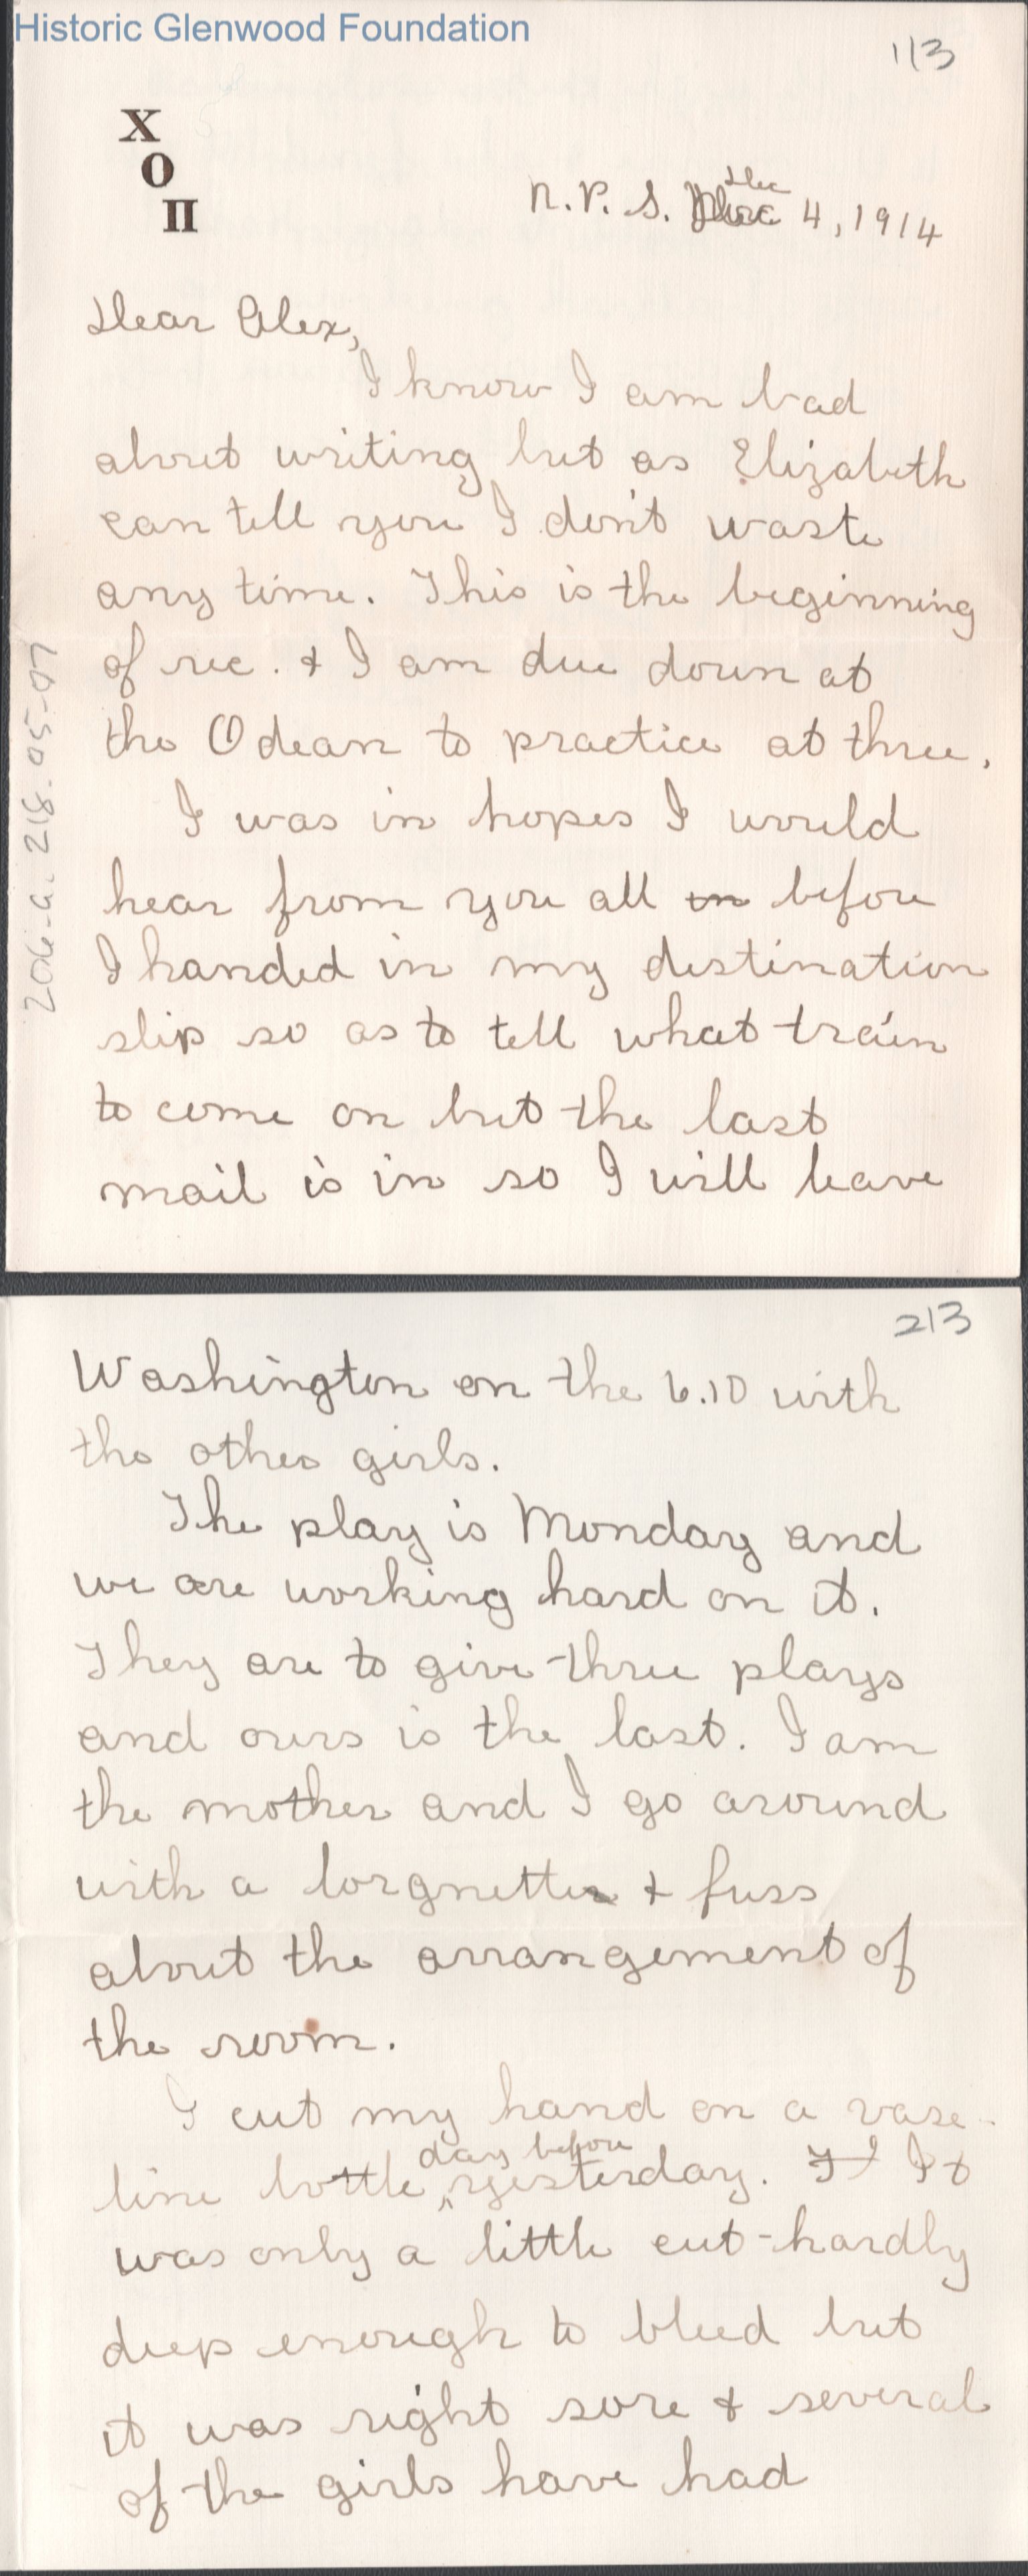 Historic Glenwood Foundation
1/3
X
O
Π
N. P. S. Dec 4, 1914
Dear Alex,
I know I am bad
about writing but as Elizabeth
can tell you I don't waste
any time. This is the beginning
of rec. & I am due down at
the Odean to practice at three.
I was in hopes I would
hear from you all in before
I handed in my destination
slip so as to tell what train
to come on but the last
mail is in so I will leave
206-a. 218.05-07
2/3
Washington on the 6.10 with
the other girls.
The play is Monday and
we are working hard on it.
They are to give three plays
and ours is the last. I am
the mother and I go around
with a lorgnette & fuss
about the arrangement of
the room.
I cut my hand on a vase-
line bottle day before yesterday. It
was only a little cut-hardly
deep enough to bleed but
it was right sore & several
of the girls have had